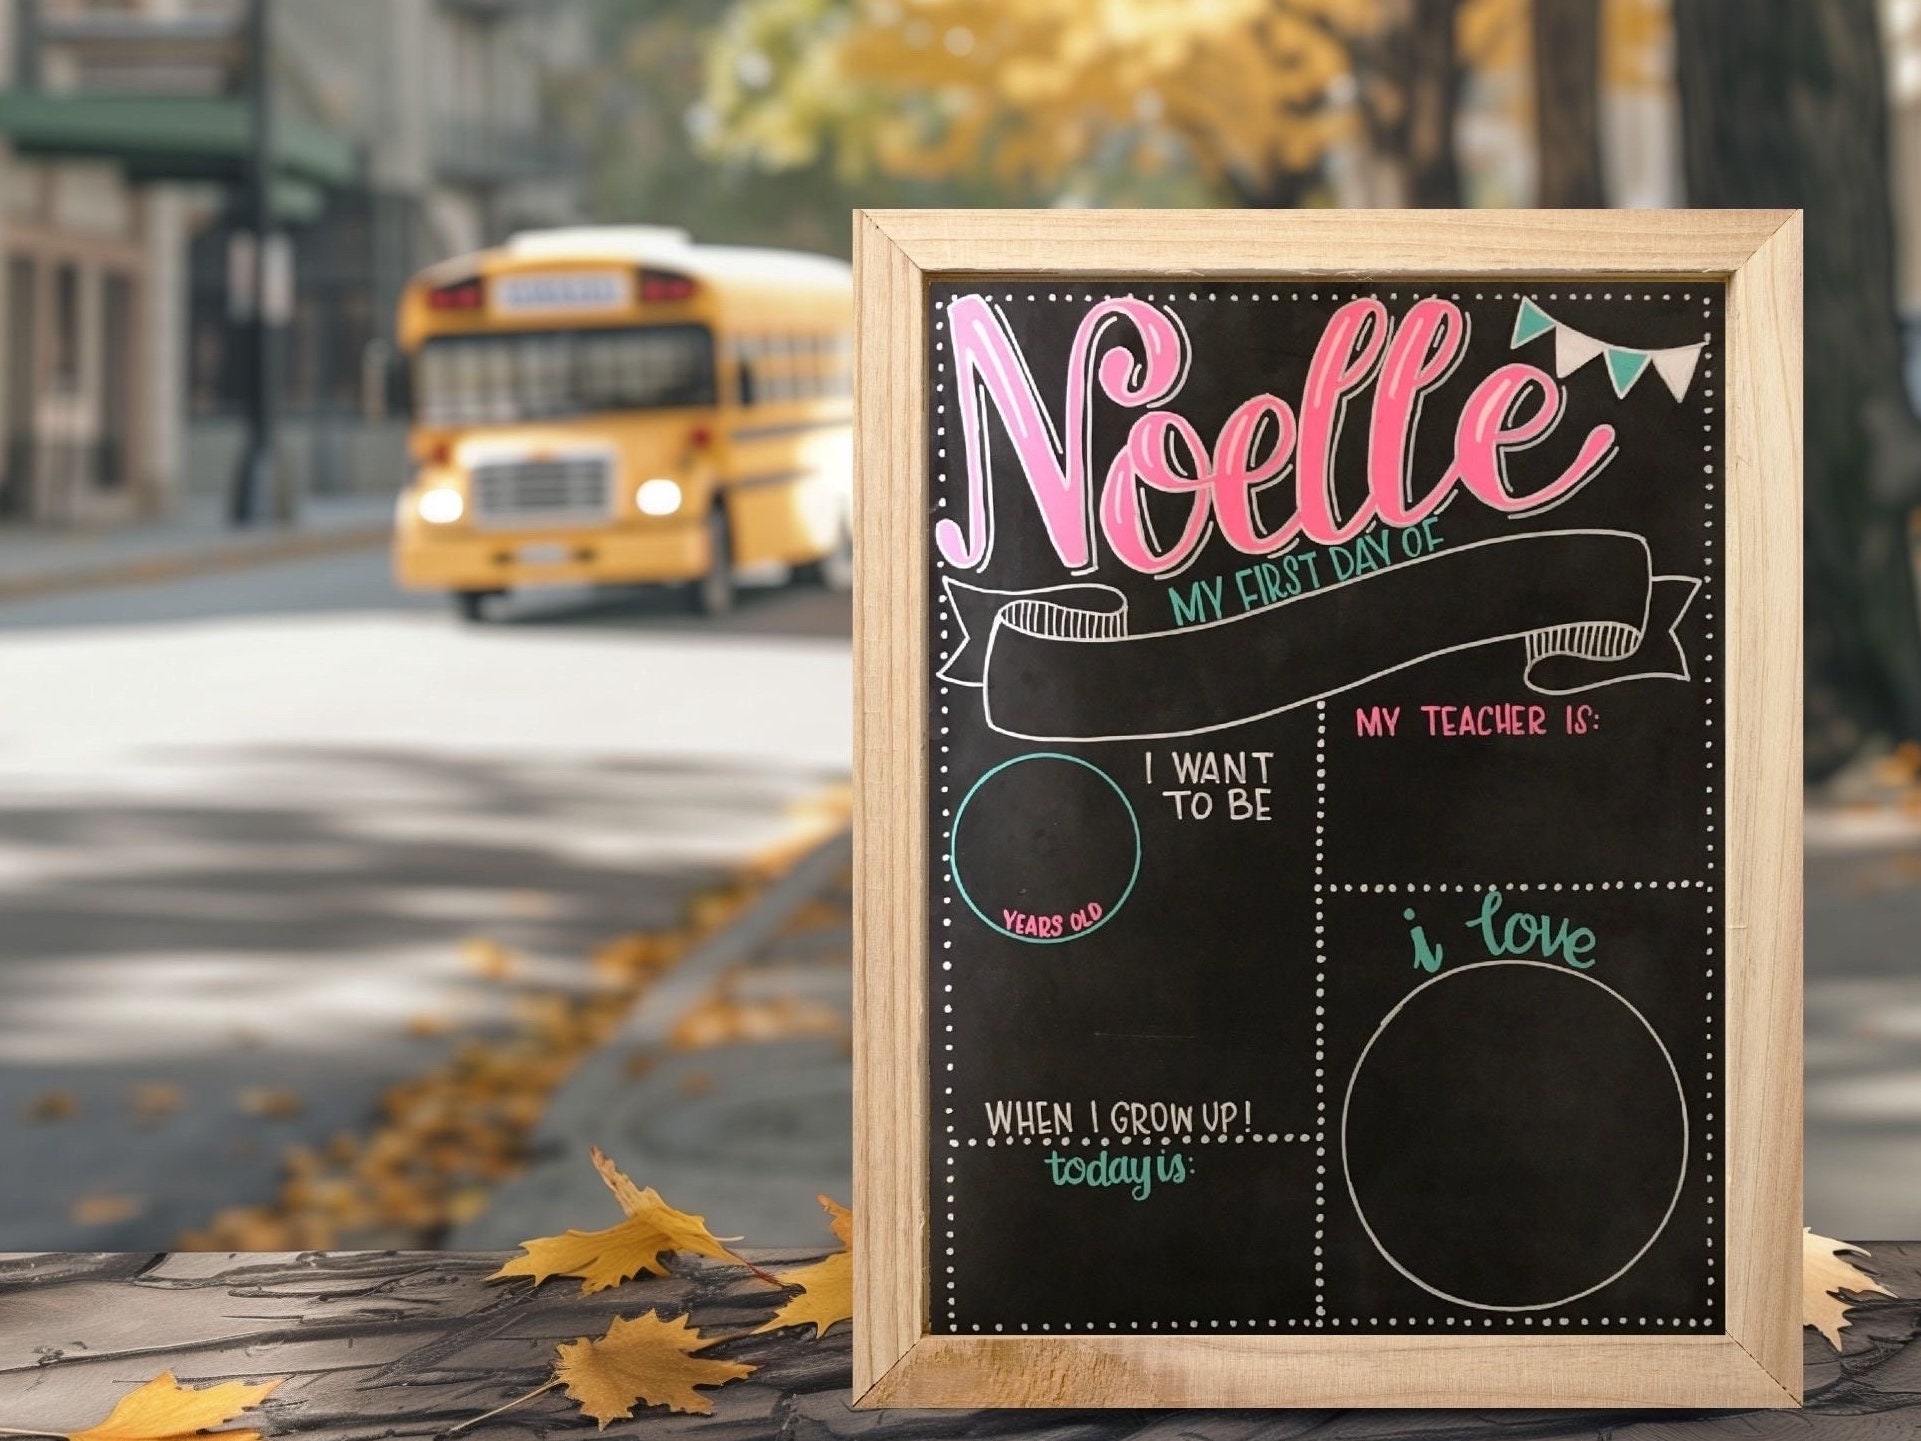 Noelle
MY FIRST DAY OF
MY TEACHER IS:
I WANT
TO BE
YEARS OLD
i love
WHEN I GROW UP!
today is: